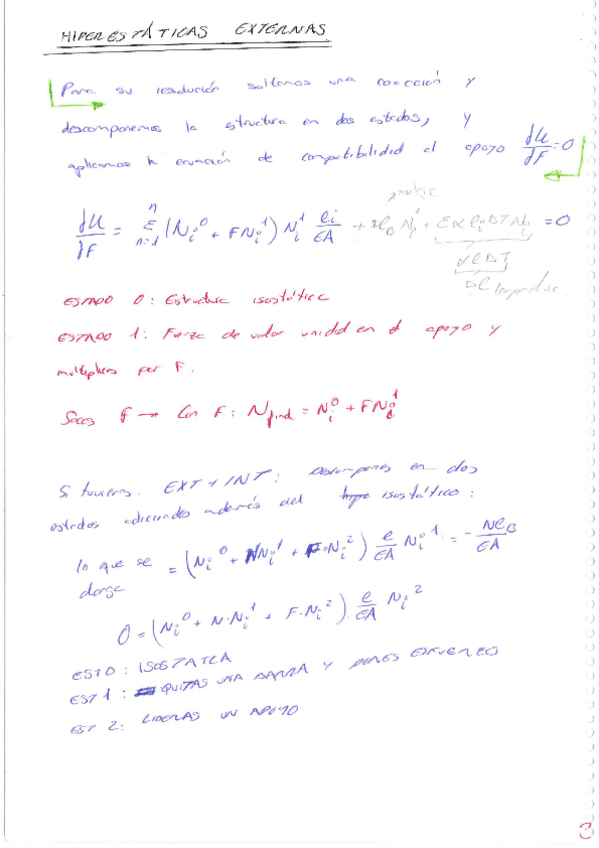 HIPERESTÁTICAS EXTERNAS
Para su resolución soltamos una coacción y
descomponemos la estructura en dos estados, y
aplicamos la ecuación de compatibilidad al apoyo ∂U/∂F = 0
∂U/∂F = Σ_{n=1}^{n} (N_i^0 + F N_i^1) N_i^1 l_i/EA + Σ l_B N_i^1 + Σ α l_i ΔT N_i = 0
α l ΔT
Δl
ESTADO 0: Estructura isostática
ESTADO 1: Fuerza de valor unidad en el apoyo y
multiplicas por F.
Sacas F → Con F: N_final = N_i^0 + F N_i^1
Si tuvieras EXT + INT: Descompones en dos
estados adicionales además del isostático:
lo que se = (N_i^0 + N N_i^1 + F·N_i^2) l/EA N_i^1 = - N l_B/EA
0 = (N_i^0 + N·N_i^1 + F·N_i^2) l/EA N_i^2
EST 0: ISOSTATCA
EST 1: QUITAS UNA BARRA Y PONES ESFUERZO
EST 2: LIBERAS UN APOYO
3